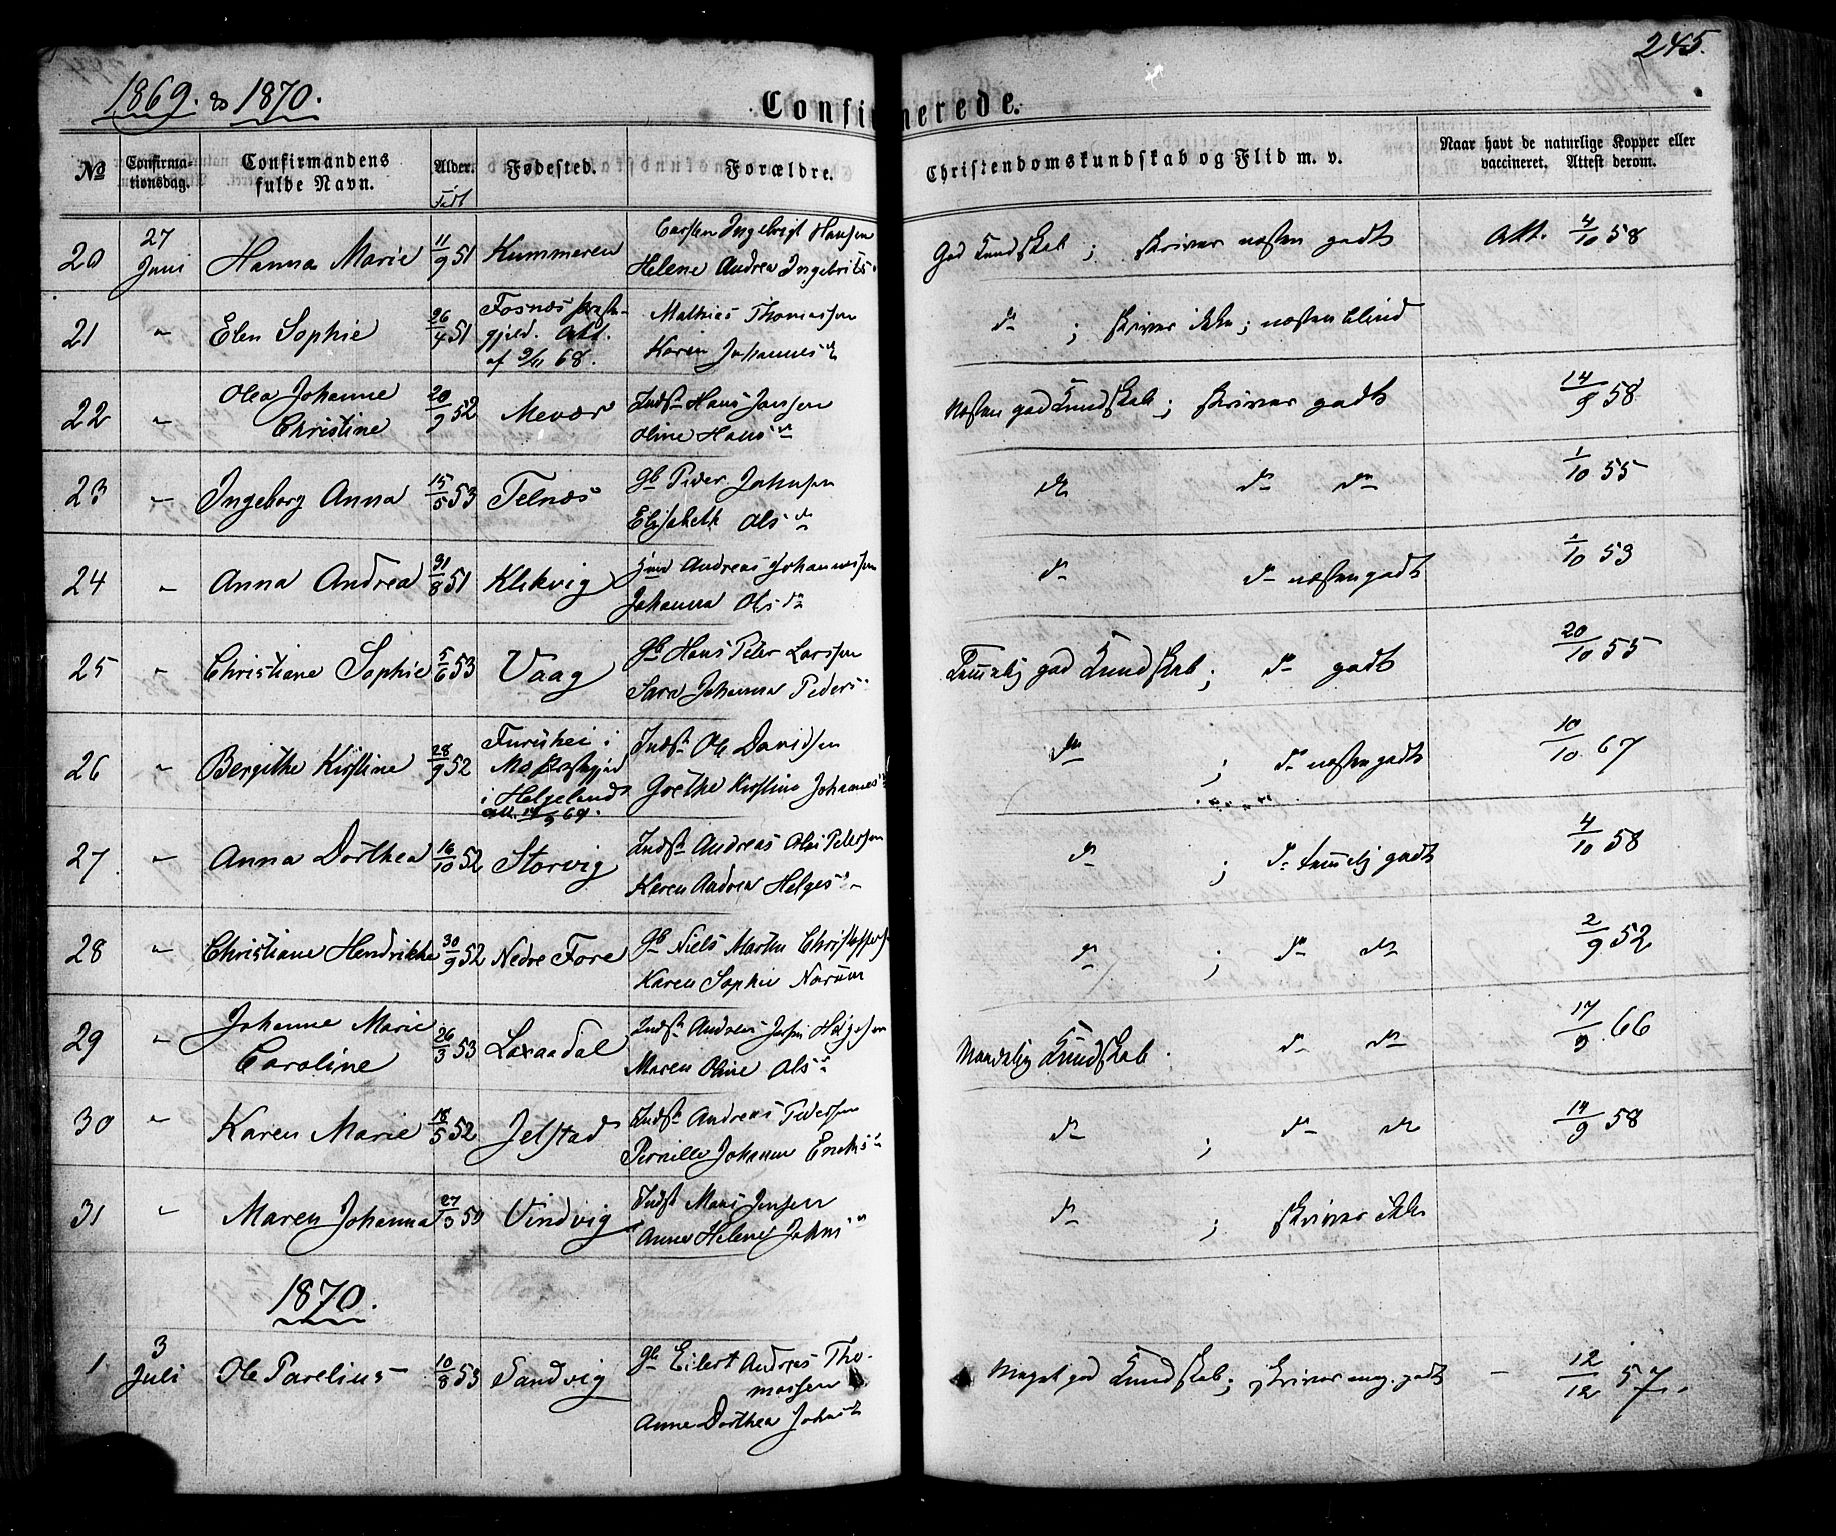 245.
1869. & 1870.
Confirmerede.
No
Confirma-
tionsdag.
Confirmandens
fulde Navn.
Alder.
Født
Fødested.
Forældre.
Christendomskundskab og Flid m. v.
Naar havt de naturlige Kopper eller
vaccineret, Attest derom.
20 27 Juni Hanna Marie 11/9 51 Kummeren
Carsten Ingebrigt Hansen
Helene Andrea Ingebrits
God Kundskab ; skriver næsten godt Att. 4/10 58
21 " Elen Sophie 26/4 51 Fosnæs Præste-
gjeld. Att.
af 9/11 68.
Mathias Thomassen
Karen Johannes d
do ; skriver ikke ; næsten blind
22 " Olea Johanne
Christine 20/9 52 Mevær
Indst Hans Jensen
Oline Hans dr
Næsten god Kundskab ; skriver godt 14/9 58
23 " Ingeborg Anna 15/5 53 Telnæs
Gb Peder Johnsen
Elisabeth Ols dr
do do do 1/10 55
24 " Anna Andrea 31/8 51 Klekvig
Andreas Johannessen
Johanna Ols dr
do do næsten godt 1/10 53
25 " Christiane Sophie 5/6 53 Vaag
Gb Hans Peter Larssen
Sara Johanna Peders
Temmelig god Kundskab ; do godt 20/10 55
26 " Bergithe Kirstine 28/9 52 Furuhei i
Mo Præstegjed
i Helgeland
Indst Ole Davidsen
Grethe Kirstine Johannes
do ; do næsten godt 10/10 67
27 " Anna Dorthea 16/10 52 Storvig
Indst Andreas Olai Petersen
Karen Andrea Helges
do ; do temmelig godt 4/10 58
28 " Christiane Hendrikke 30/9 52 Nedre Fore
Gb Niels Martin Christoffers
Karen Sophie Norum
do ; do do 2/9 52
29 " Johanne Marie
Caroline 26/3 53 Laxaadal
Indst Andreas Helgesen
Maren Oline Ols d
Maadelig Kundskab. do do 17/9 66
30 " Karen Marie 18/5 52 Jelstad
Indst Andreas Pedersen
Pernille Johanna Eriks d
do ; do do 14/9 58
31 " Maren Johanna 27/3 50 Vindvig
Indst Mons Jensen
Anne Helene Johns d
do ; skriver ikke
1870.
1 3 Juli Ole Parelius 10/8 53 Sandvig
Gb Eilert Andreas Tho-
massen
Anne Dorthea Johns d
Meget god Kundskab ; skriver meg. godt – 12/12 57.